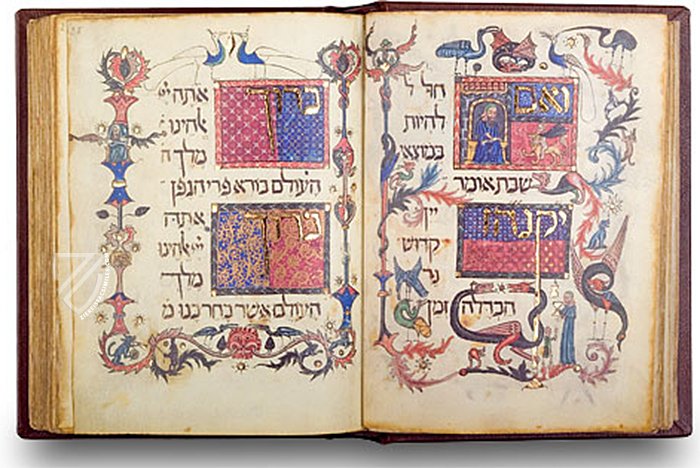 ואם חל ל
להיות
במוצא
שבת אומר
יקנהז יין
קדוש
נר
הבדלה זמן
ברוך אתה יי
אלהינו
מלך
העולם בורא פרי הגפן
ברוך אתה
יי אלהינו
מלך
העולם אשר בחר בנו מ